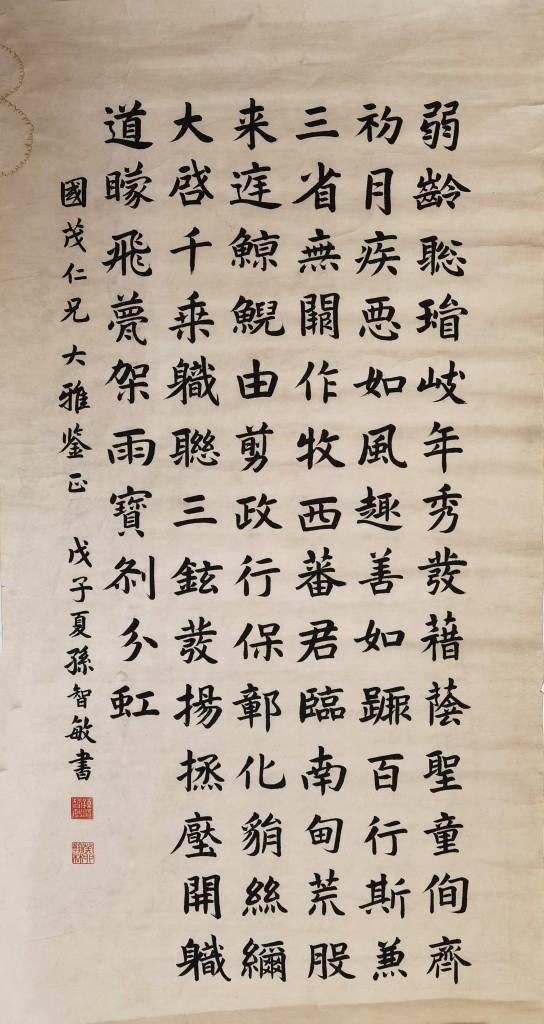 弱齡聡瑨岐年秀發藉蔭聖童侚齊
初月疾惡如風趣善如踱百行斯兼
三省無闕作牧西蕃君臨南甸荒服
来遊鯨鯢由剪政行保鄣化貊絲綸
大啓千乗職聯三鉉發揚丞壓開職
道矇飛甍架雨寶剎分虹
國茂仁兄大雅鉴正 戊子夏孫智敏書